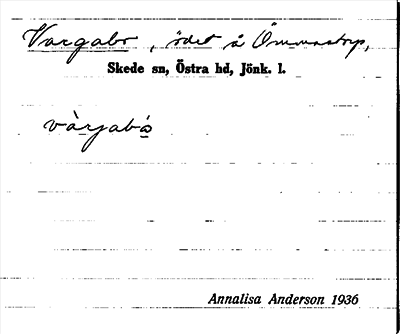 Vargabo, ödet å Ömmestorp,
Skede sn, Östra hd, Jönk. l.
Annalisa Anderson 1936